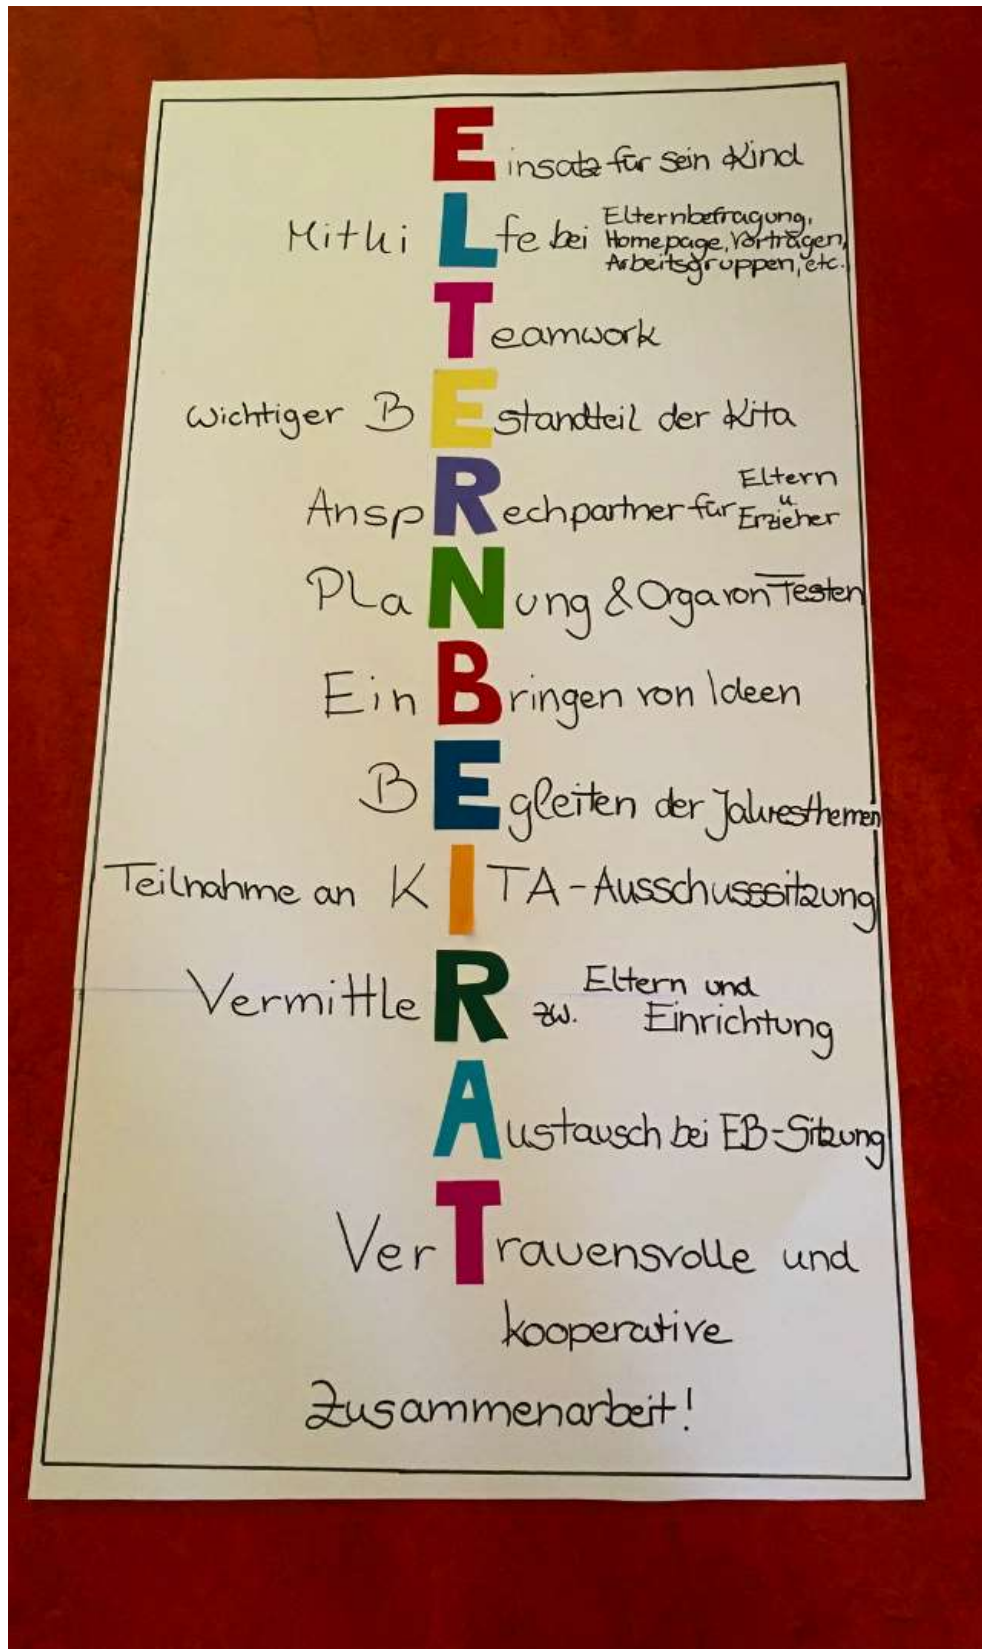 Einsatz für sein Kind
Mithilfe bei Elternbefragung,
Homepage, Vorträgen,
Arbeitsgruppen, etc.
Teamwork
wichtiger BEstandteil der Kita
AnspRechpartner für Eltern
u
Erzieher
PlaNung & Orga von Festen
EinBringen von Ideen
BEgleiten der Jahresthemen
Teilnahme an KITA-Ausschusssitzung
VermittleR zw. Eltern und
Einrichtung
Austausch bei EB-Sitzung
VerTrauensvolle und
kooperative
Zusammenarbeit!